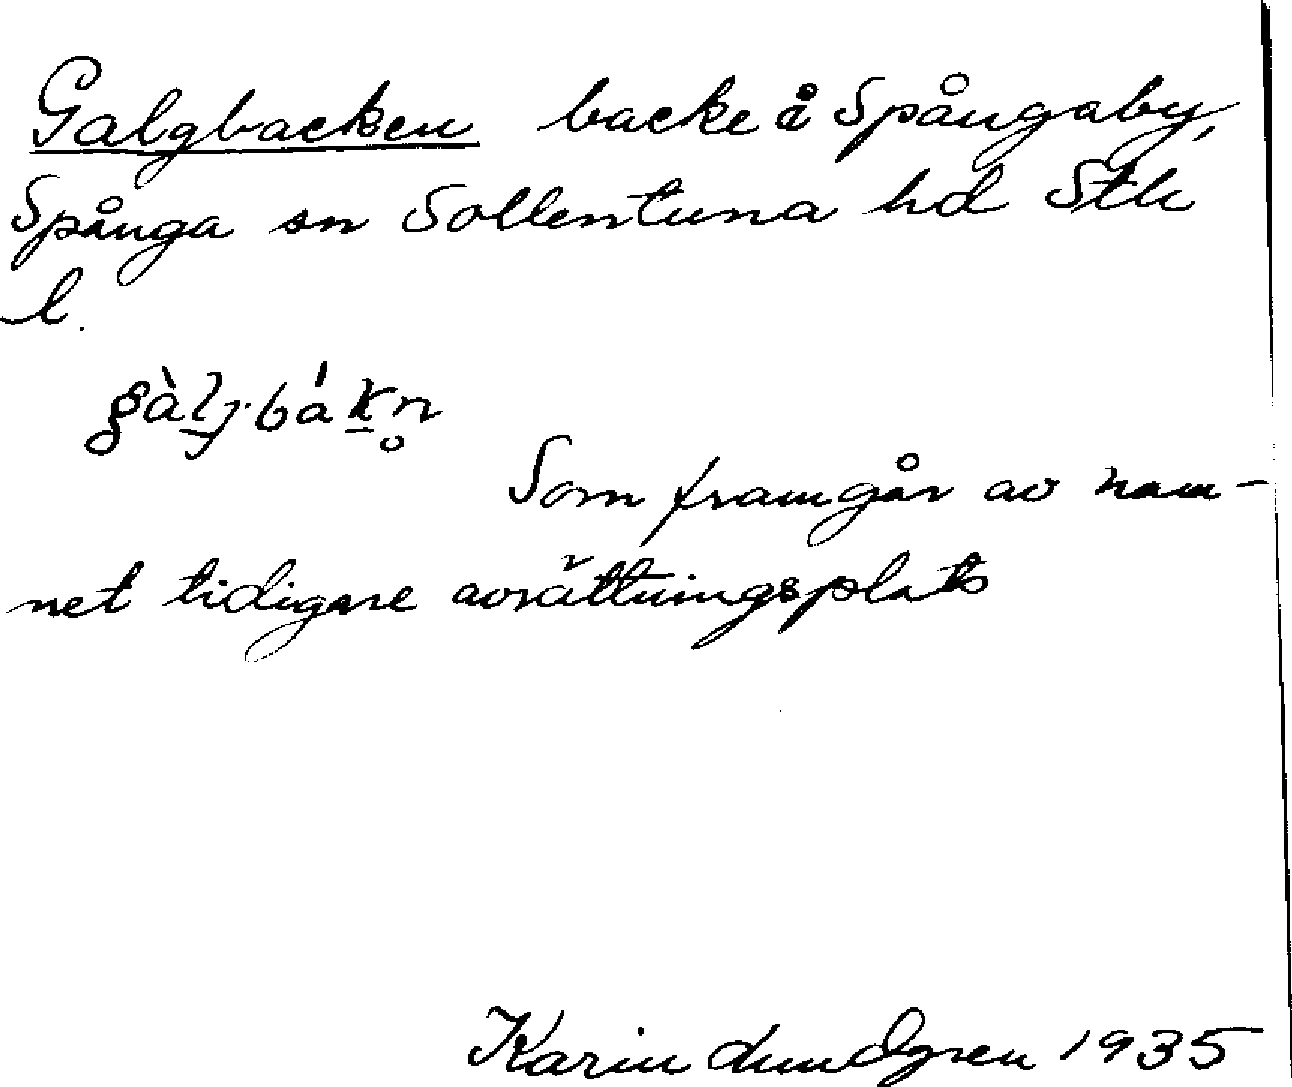 Galgbacken backe å Spångaby,
Spånga sn Sollentuna hd Sth
l.
gàlj·bákn̥
Som framgår av nam-
net tidigare avrättningsplats
Karin Lundgren 1935